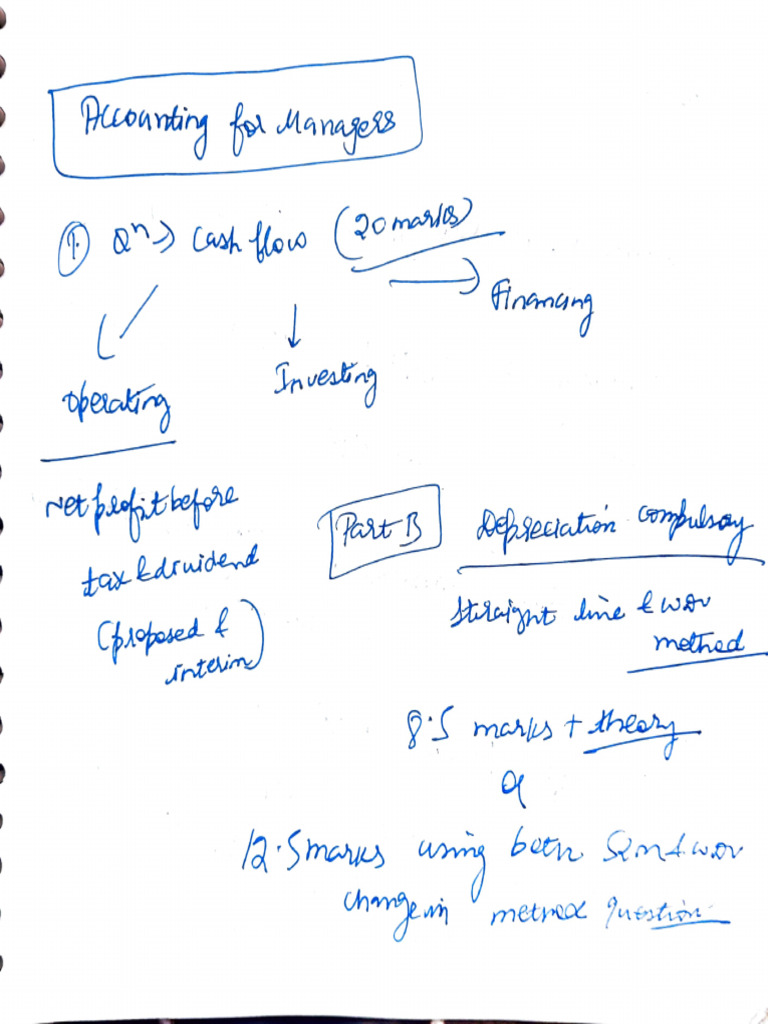 Accounting for Managers
1. Qn → Cash flow (20 marks)
Financing
Operating
Investing
Net profit before
tax & dividend
(proposed &
interim)
Part B
Depreciation compulsory
straight line & WDV
method
8.5 marks + theory
or
12.5 marks using both SLM & WDV
change in method question